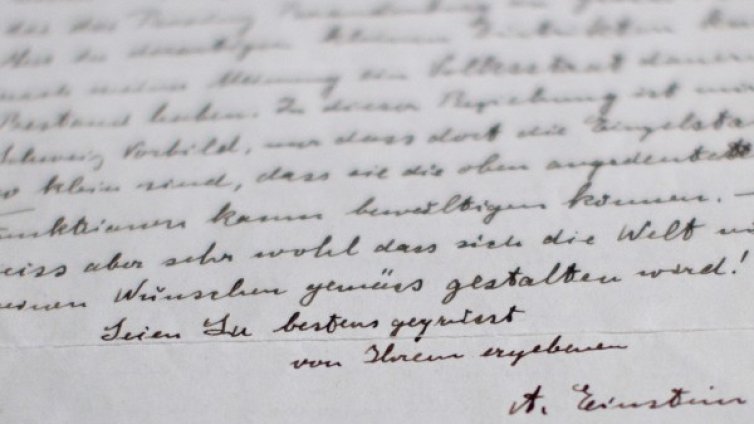 nach meiner Meinung ein Volksstaat dauern
Bestand haben. In dieser Beziehung ist mi
Schweiz Vorbild, nur dass dort die Einzelsta
so klein sind, dass sie die oben angedeutet
unktionen kaum bewältigen können. –
eiss aber sehr wohl dass sich die Welt ni
einen Wünschen gemäss gestalten wird!
Seien Sie bestens gegrüsst
von Ihrem ergebenen
A. Einstein